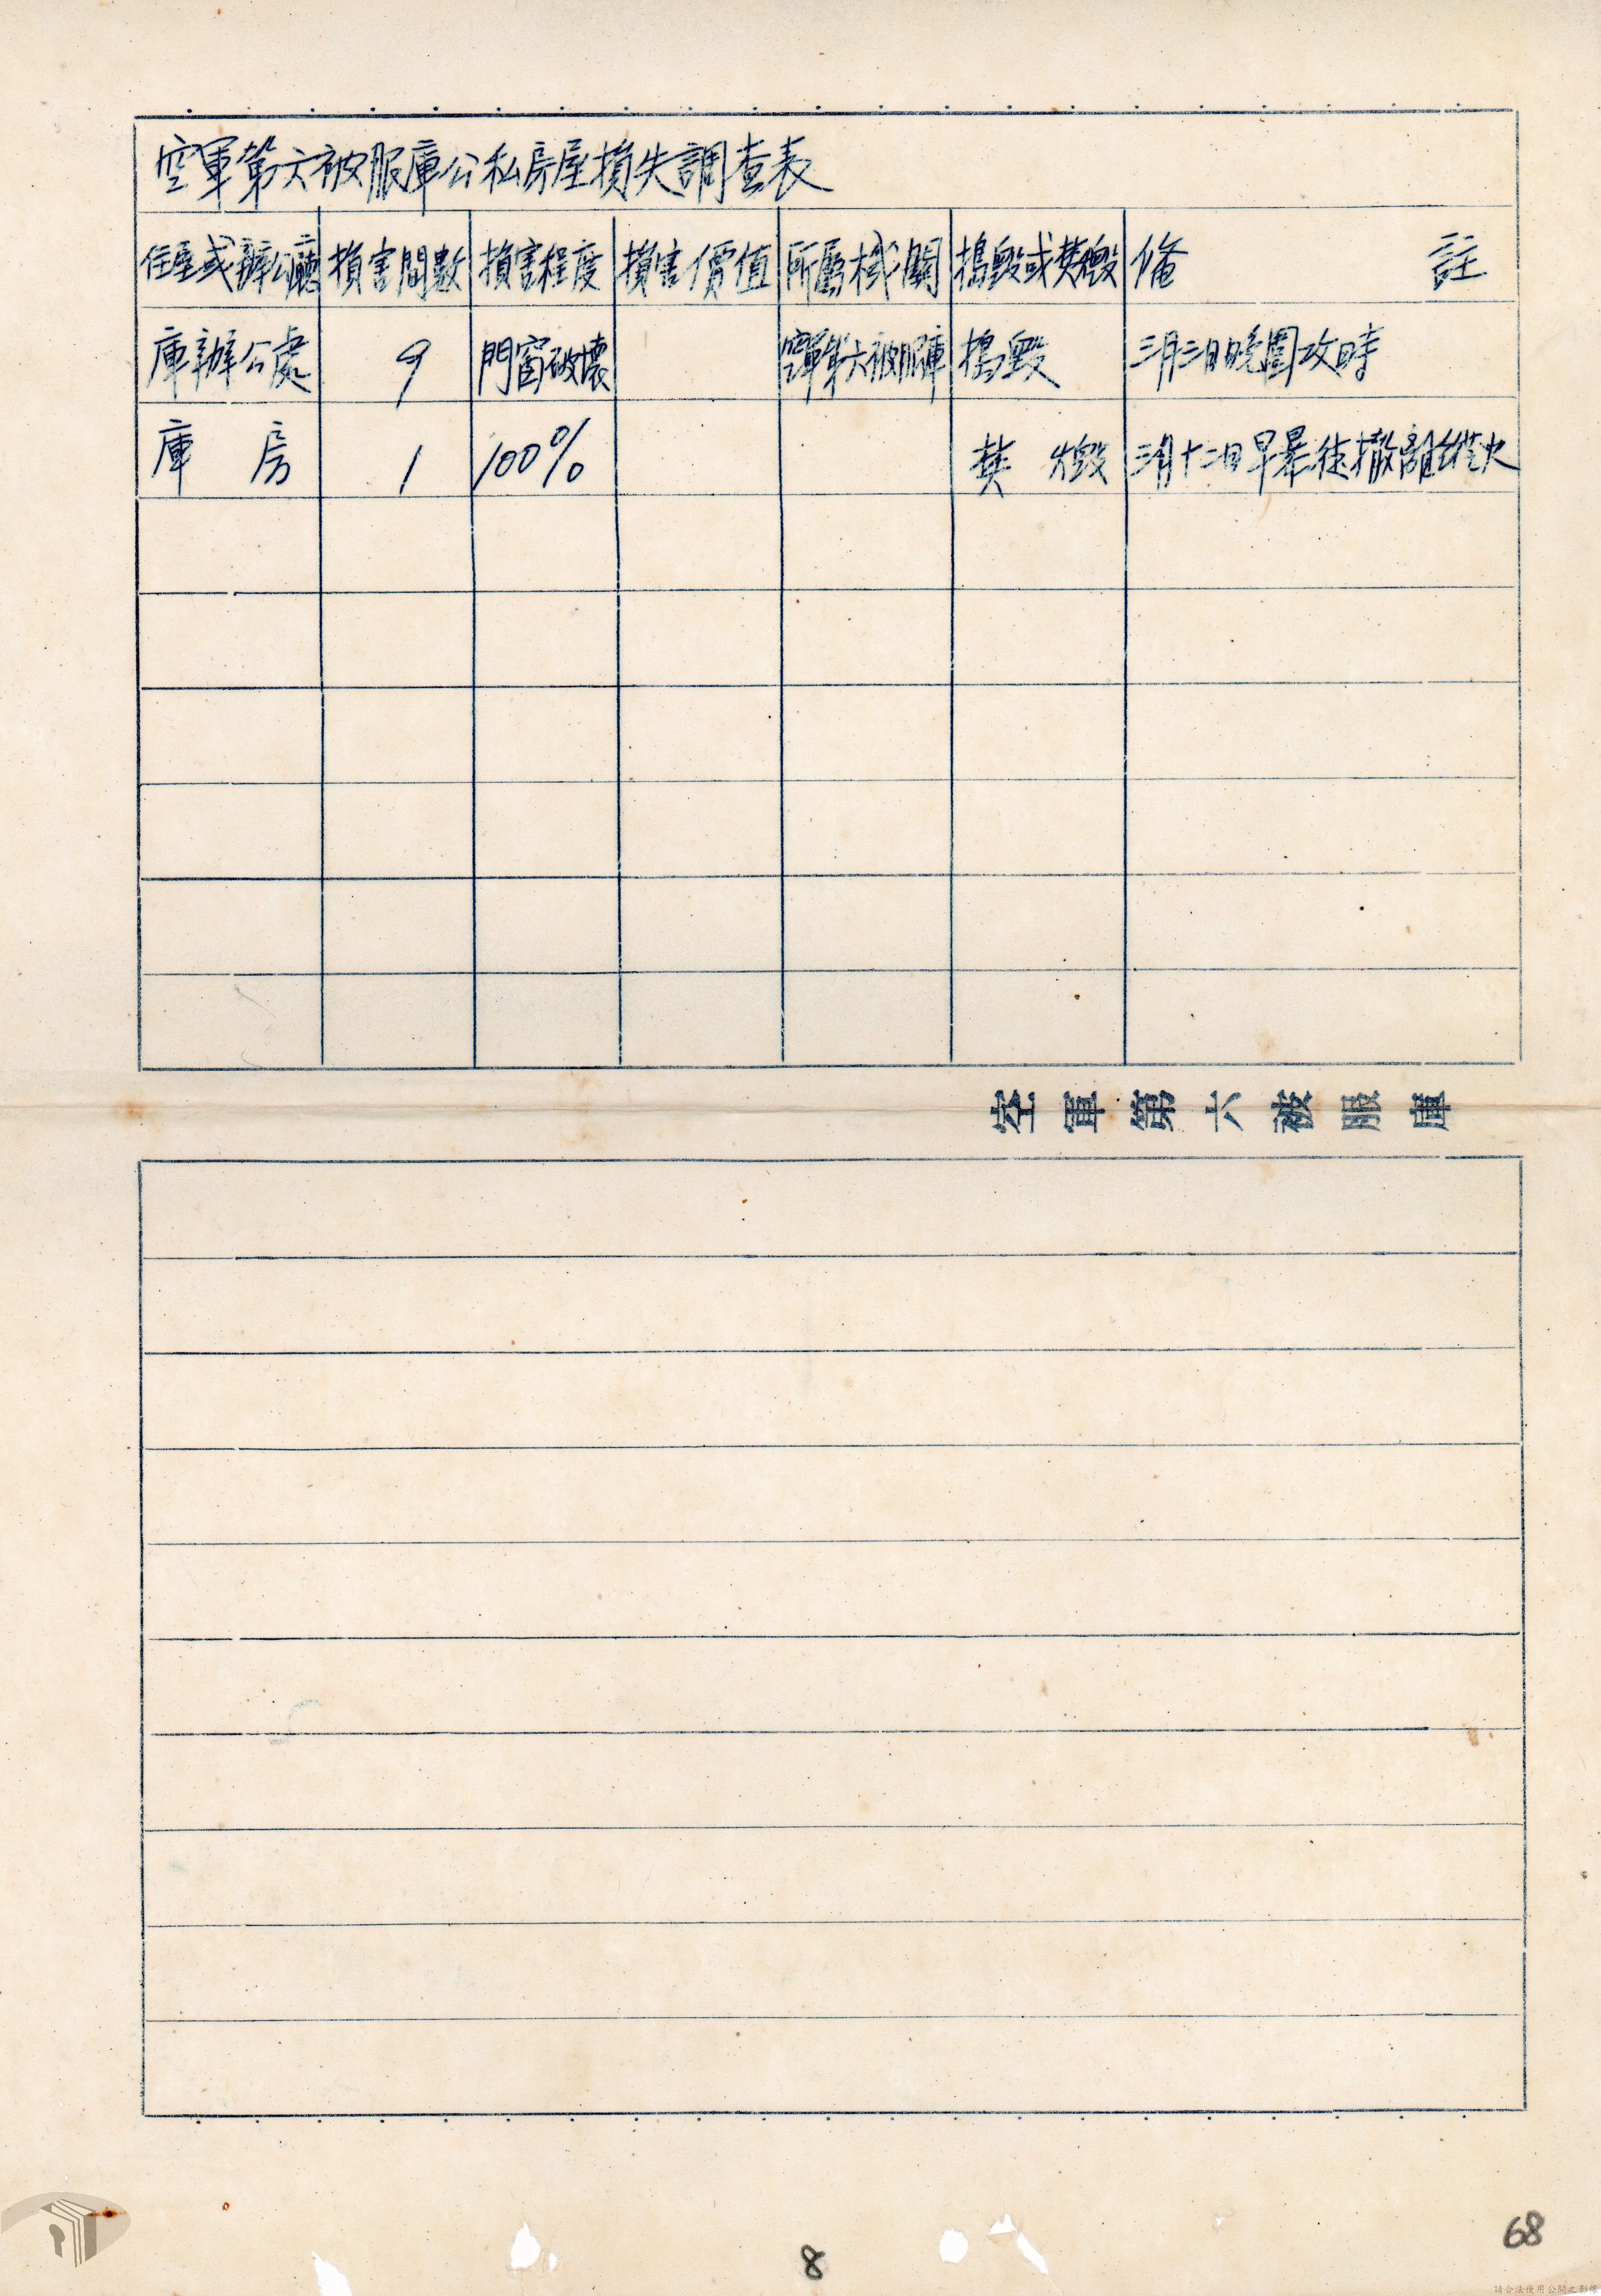 空軍第六被服庫公私房屋損失調查表
住屋或辦公廳 損害間數 損害程度 損害價值 所屬機關 搗毀或焚燬 備註
庫辦公處 9 門窗破壞 空軍第六被服庫 搗毀 三月三日晚圍攻時
庫房 1 100% 焚燬 三月十二日早暴徒撤離縱火
空軍第六被服庫
8
68
請合法使用公開之影像